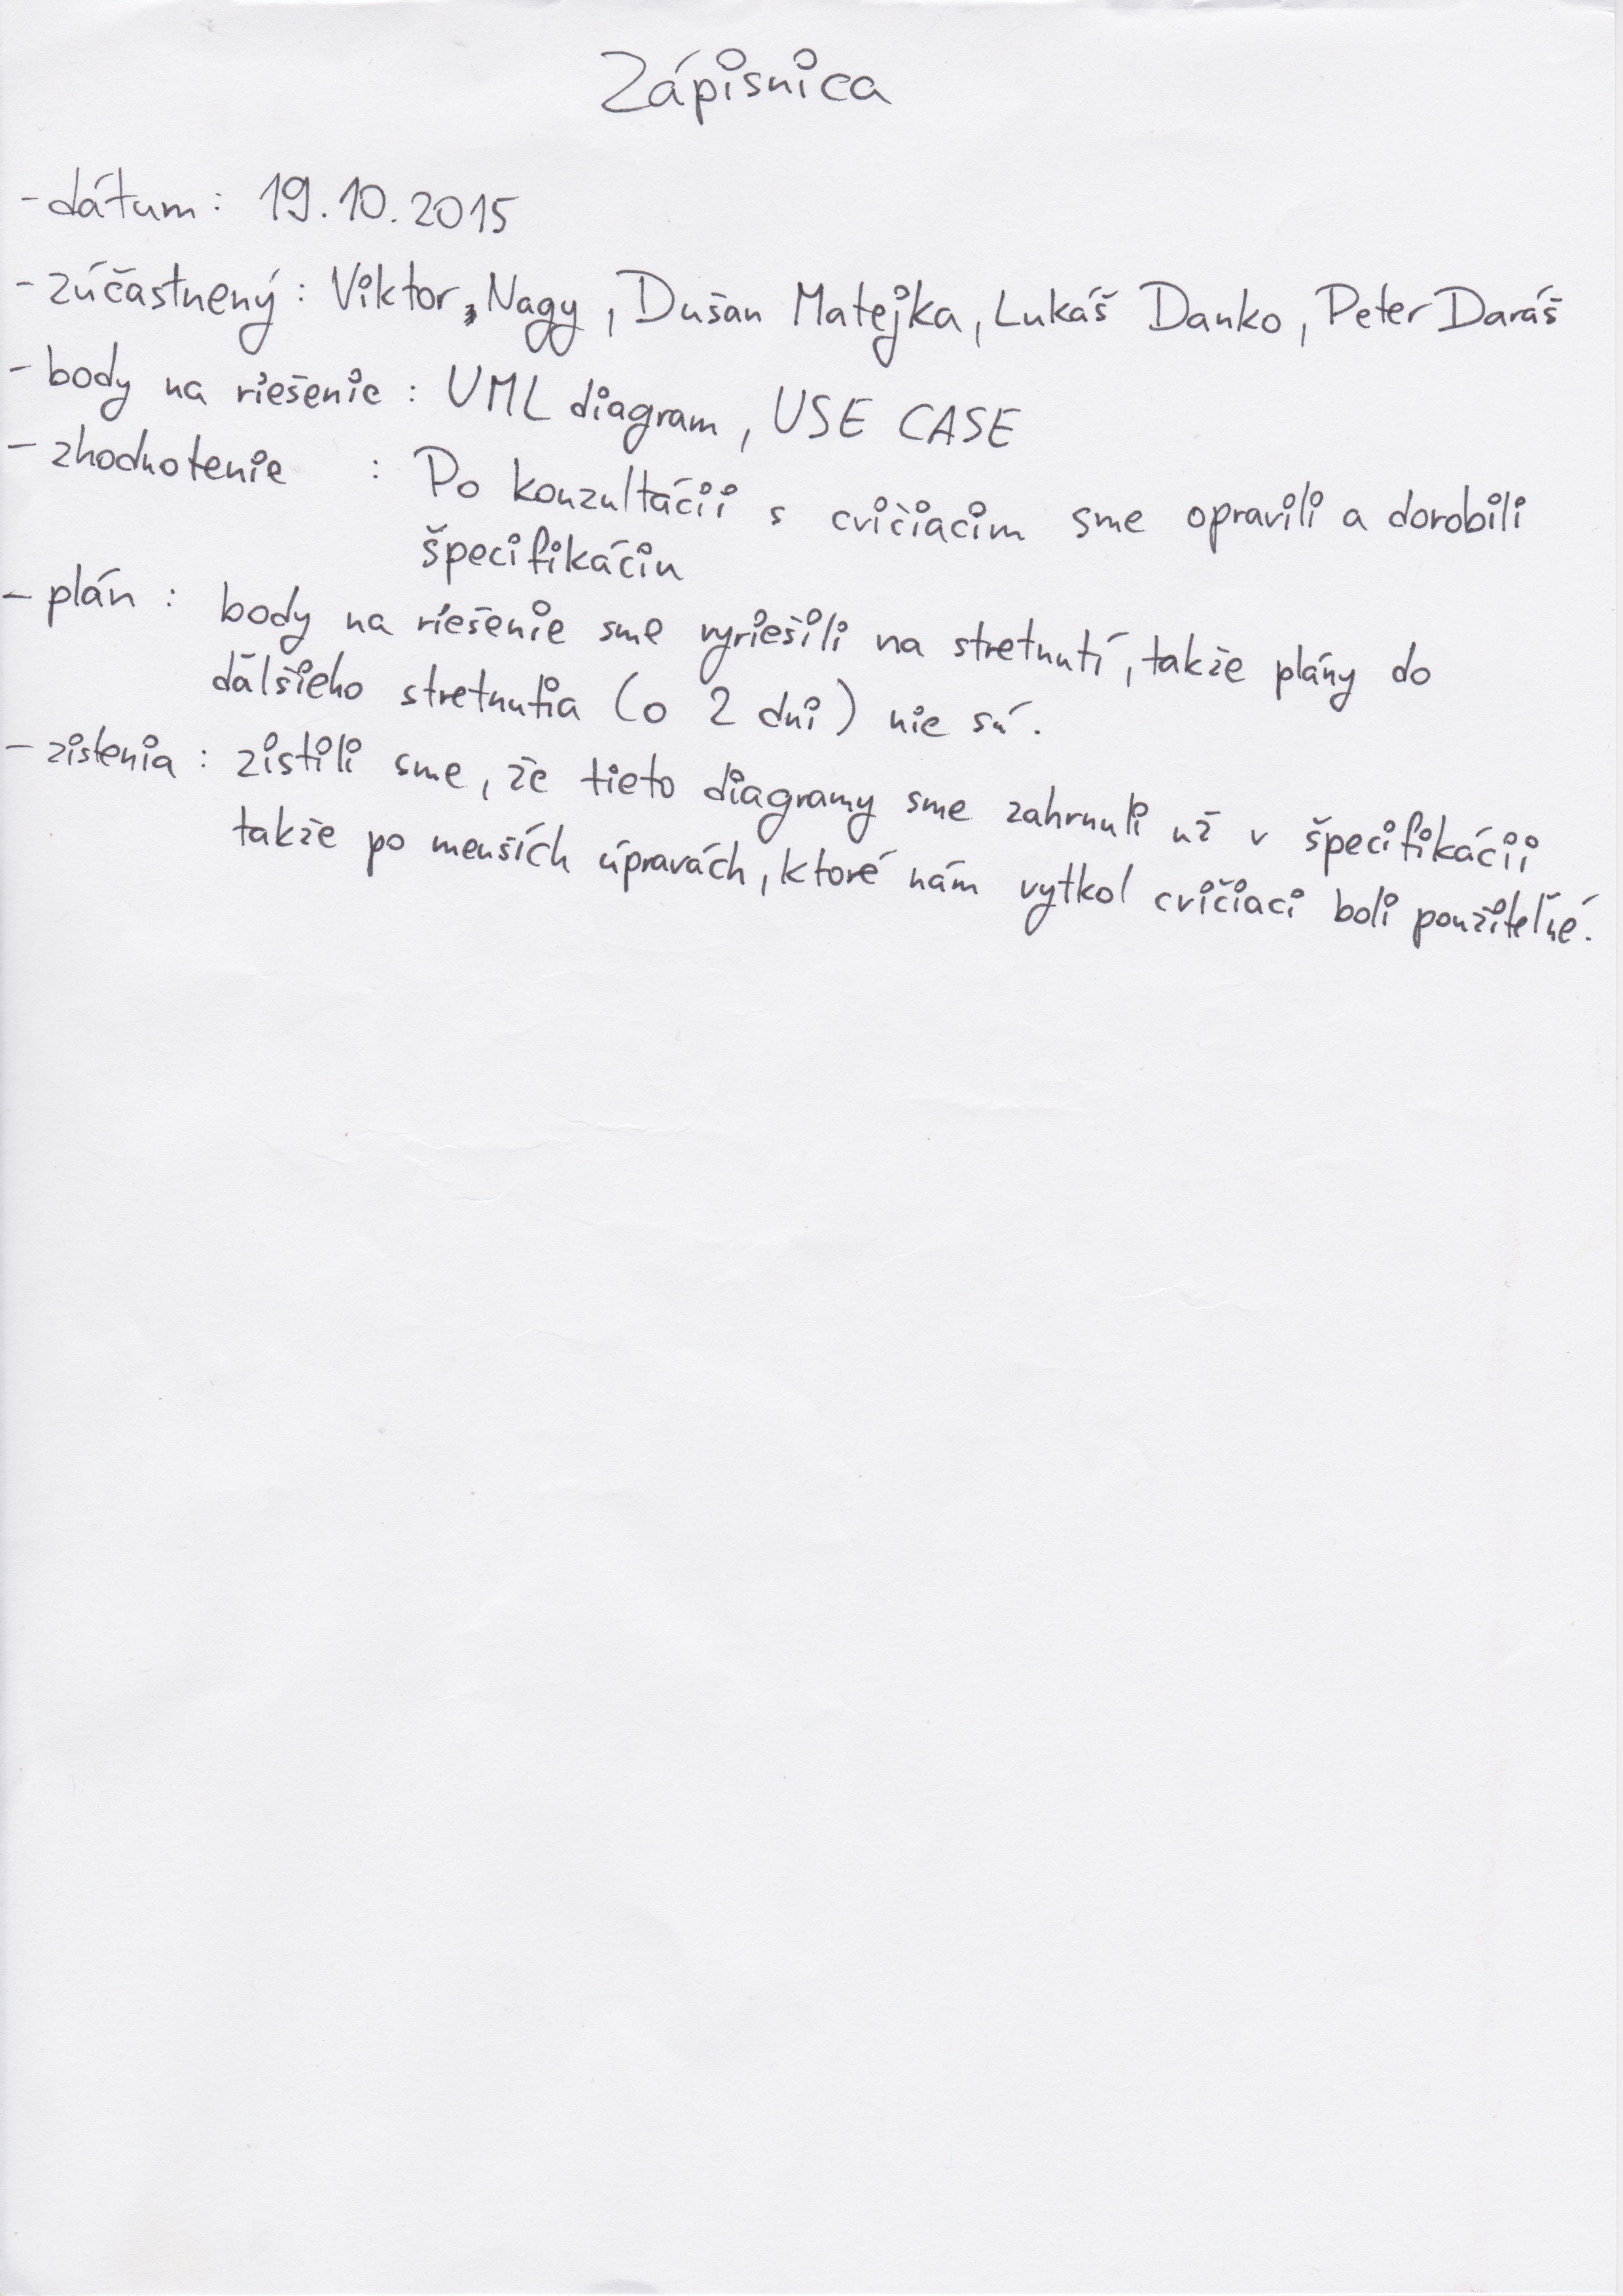 Zápisnica
- dátum : 19.10.2015
- zúčastnený : Viktor, Nagy, Dušan Matejka, Lukáš Danko, Peter Daráš
- body na riešenie : UML diagram, USE CASE
- zhodnotenie : Po konzultácií s cvičiacim sme opravili a dorobili
špecifikáciu
- plán : body na riešenie sme vyriešili na stretnutí, takže plány do
ďalšieho stretnutia (o 2 dni) nie sú.
- zistenia : zistili sme, že tieto diagramy sme zahrnuli už v špecifikácii
takže po menších úpravách, ktoré nám vytkol cvičiaci boli použiteľné.